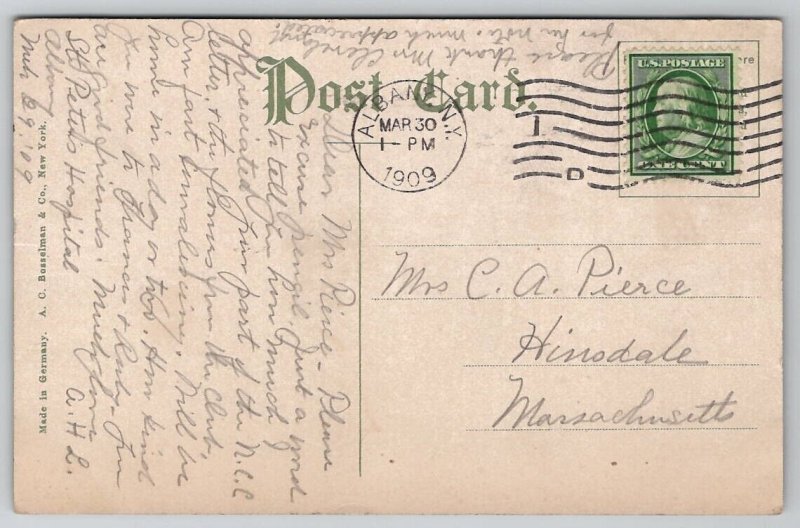 Post Card.
ALBANY, N.Y.
MAR 30
1 - PM
1909
1
D
U.S. POSTAGE
ONE CENT
re
Mrs C. A. Pierce
Hinsdale
Massachusetts
Dear Mrs Pierce - Please
excuse pencil. Just a word
to tell you how much I
appreciated your part of the N.C.C
letter, & the flowers from the club,
Am fast convalescing. Will be
home in a day or two. How kind
you were to Frances & Ruby - You
are good friends. Much love
St. Peter's Hospital A. H L.
Albany
Mch 29, '09
Please thank Mrs
for her note. Much appreciated.
Made in Germany. A. C. Bosselman & Co., New York.